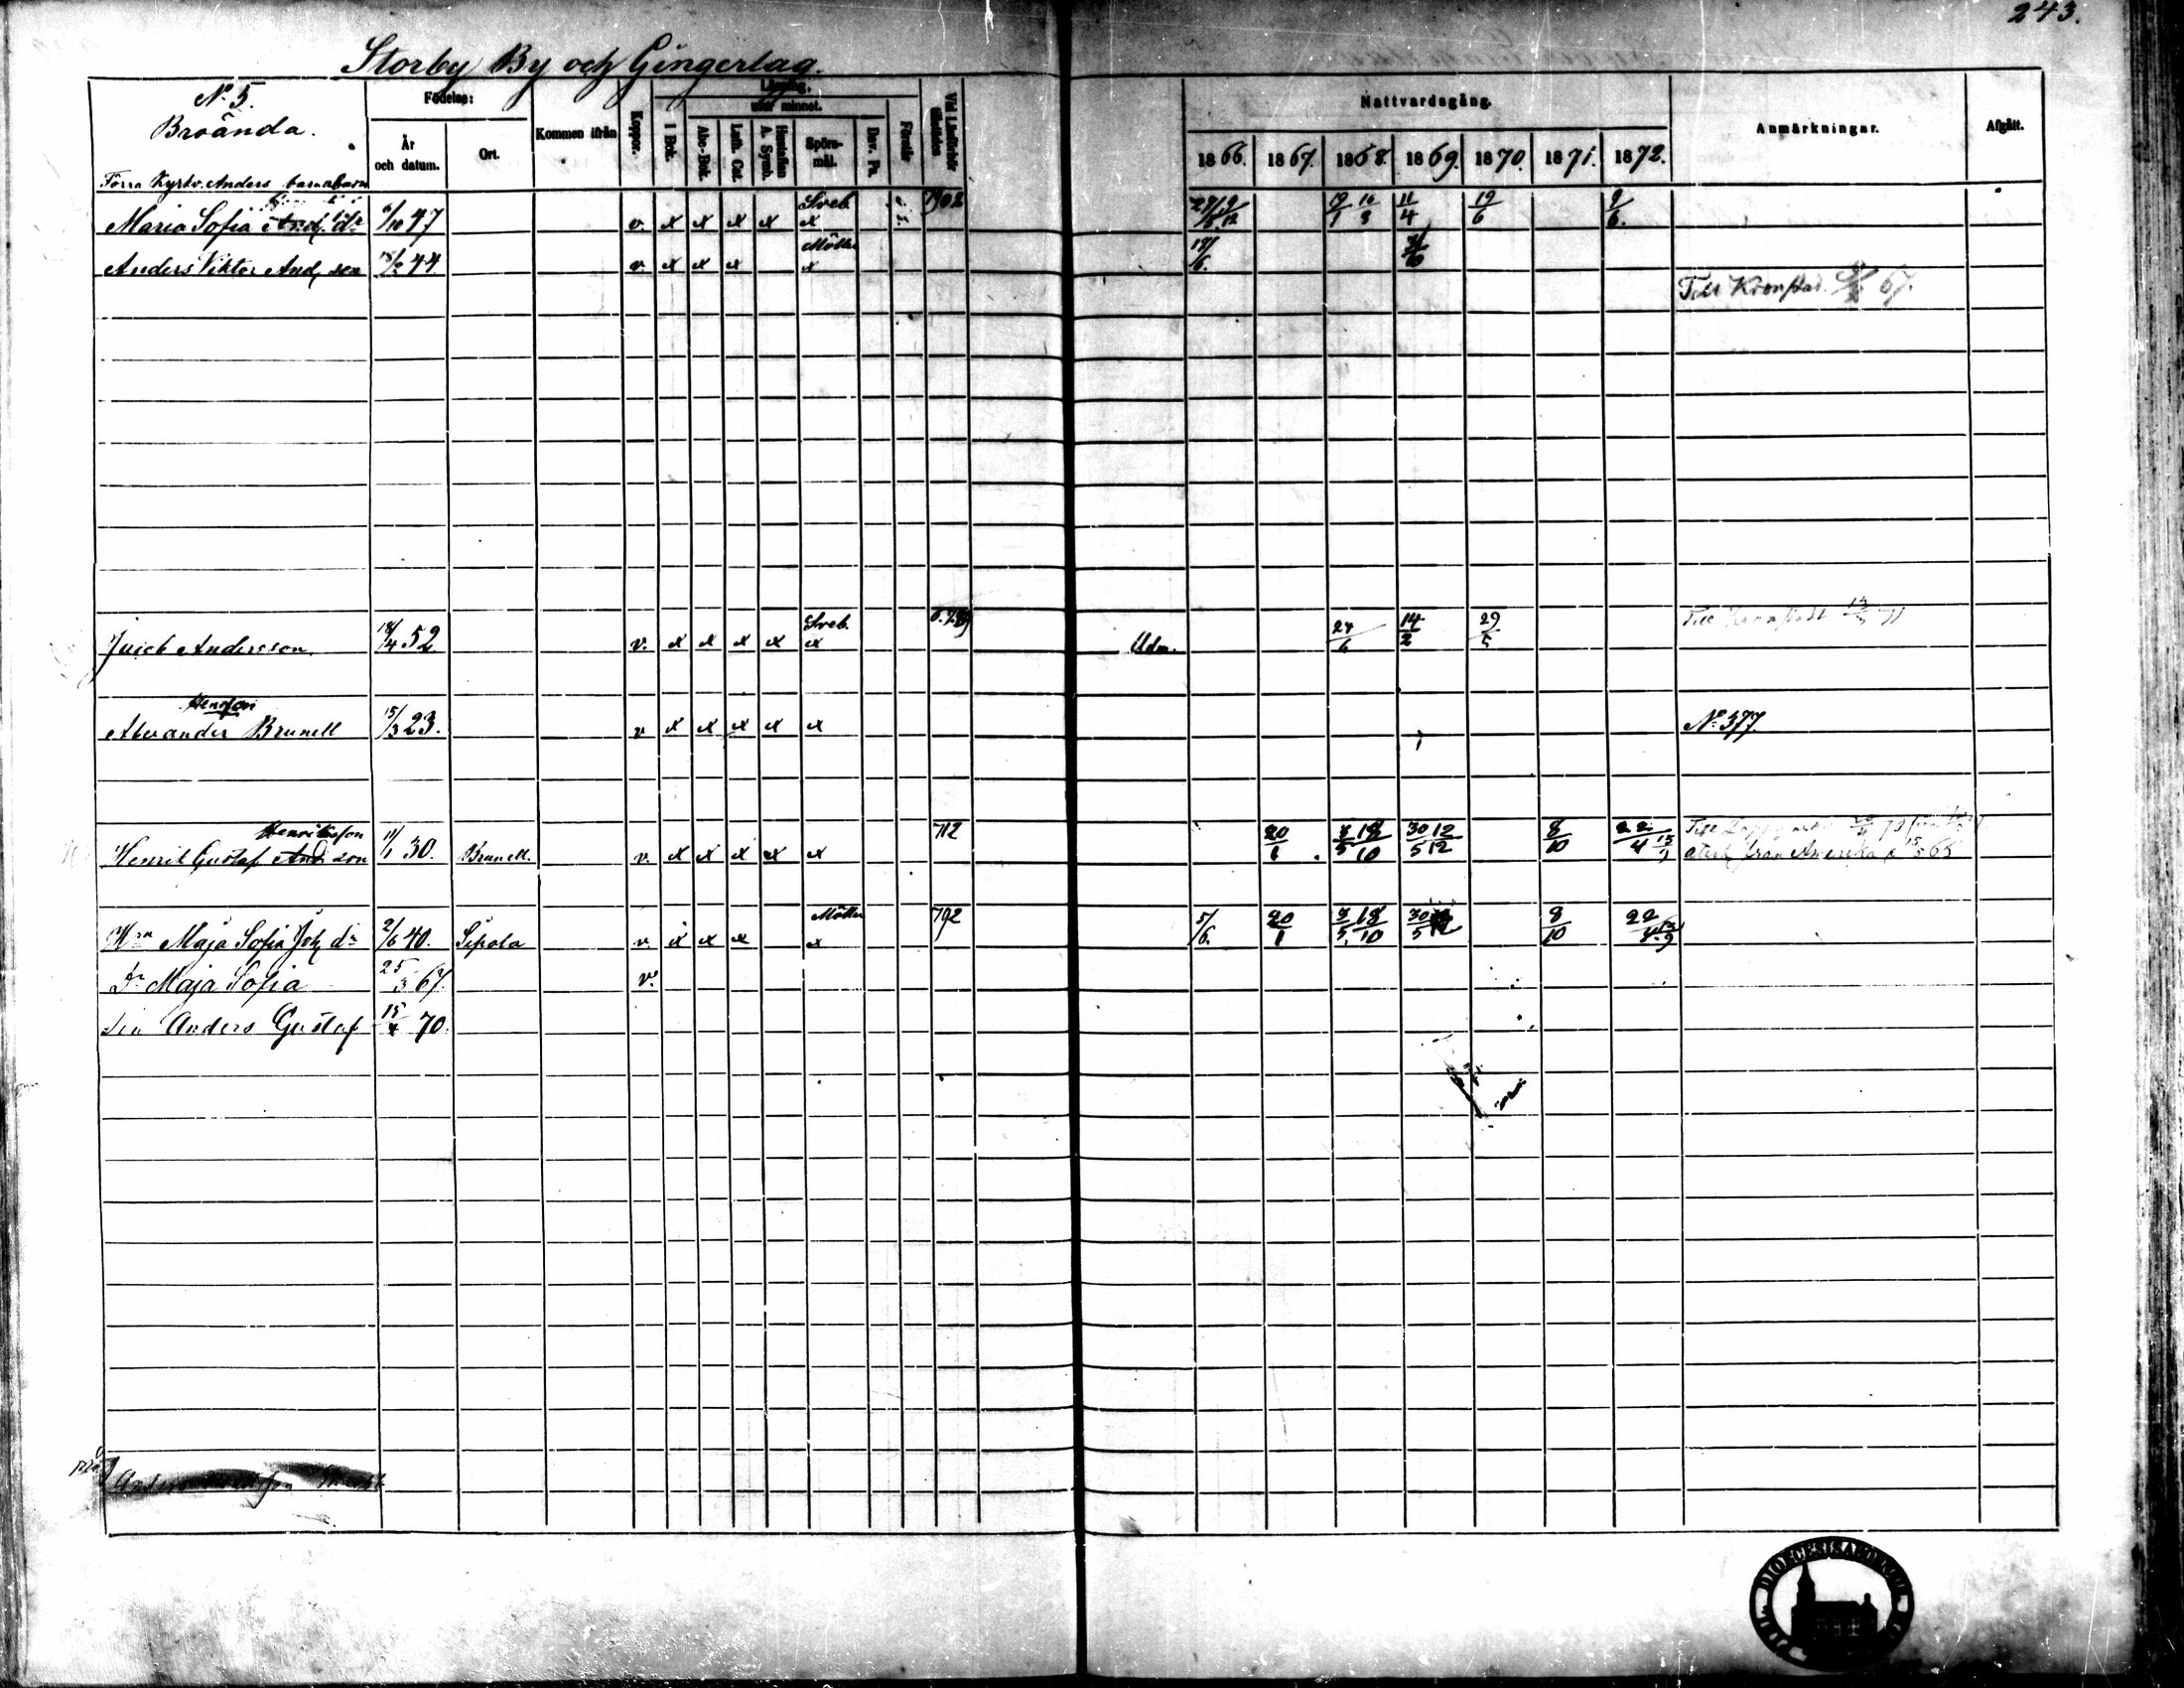 243.
Storby By och Gingerlag.
No 5.
Broända.
Födelse:
År och datum.
Ort.
Kommen ifrån
Koppor.
Läsning.
I Bok.
utur minnet.
Abc-Bok.
Luth. Cat.
Hustaflan A. Symb.
Spörsmål.
Dav. Ps.
Förstår
Nattvardsgång.
1866. 1867. 1868. 1869. 1870. 1871. 1872.
Anmärkningar.
Afgått.
Förra Kyrkv. Anders barnabarn
Maria Sofia And. dr 6/10 47 v. x x x x Sveb. x 19/6 9/6.
Anders Viktor And. son 44 v x x x Möller x 18/6.
Till Kronstad 67.
Andersson 18/4 52 v. x x x x Sveb. x Adm. 24/6 14/2 29/5
Till Kronstadt
Alexander Brunell 15/3 23. v x x x x x No 377.
Henriksson
Henrik Gustaf And son 11/1 30. Brunell. v. x x x x x 712 20/1 3/5 18/10 30/5 12/12 8/10 22/4
återk. från Amerika 15/5 65
Maja Sofia Joh. dr 2/6 40. Sipola v x x x Möller x 792 5/6. 20/1 3/5 18/10 30/5 8/10 22/4
Dr Maja Sofia 25/3 67. v.
Son Anders Gustaf 15/4 70.